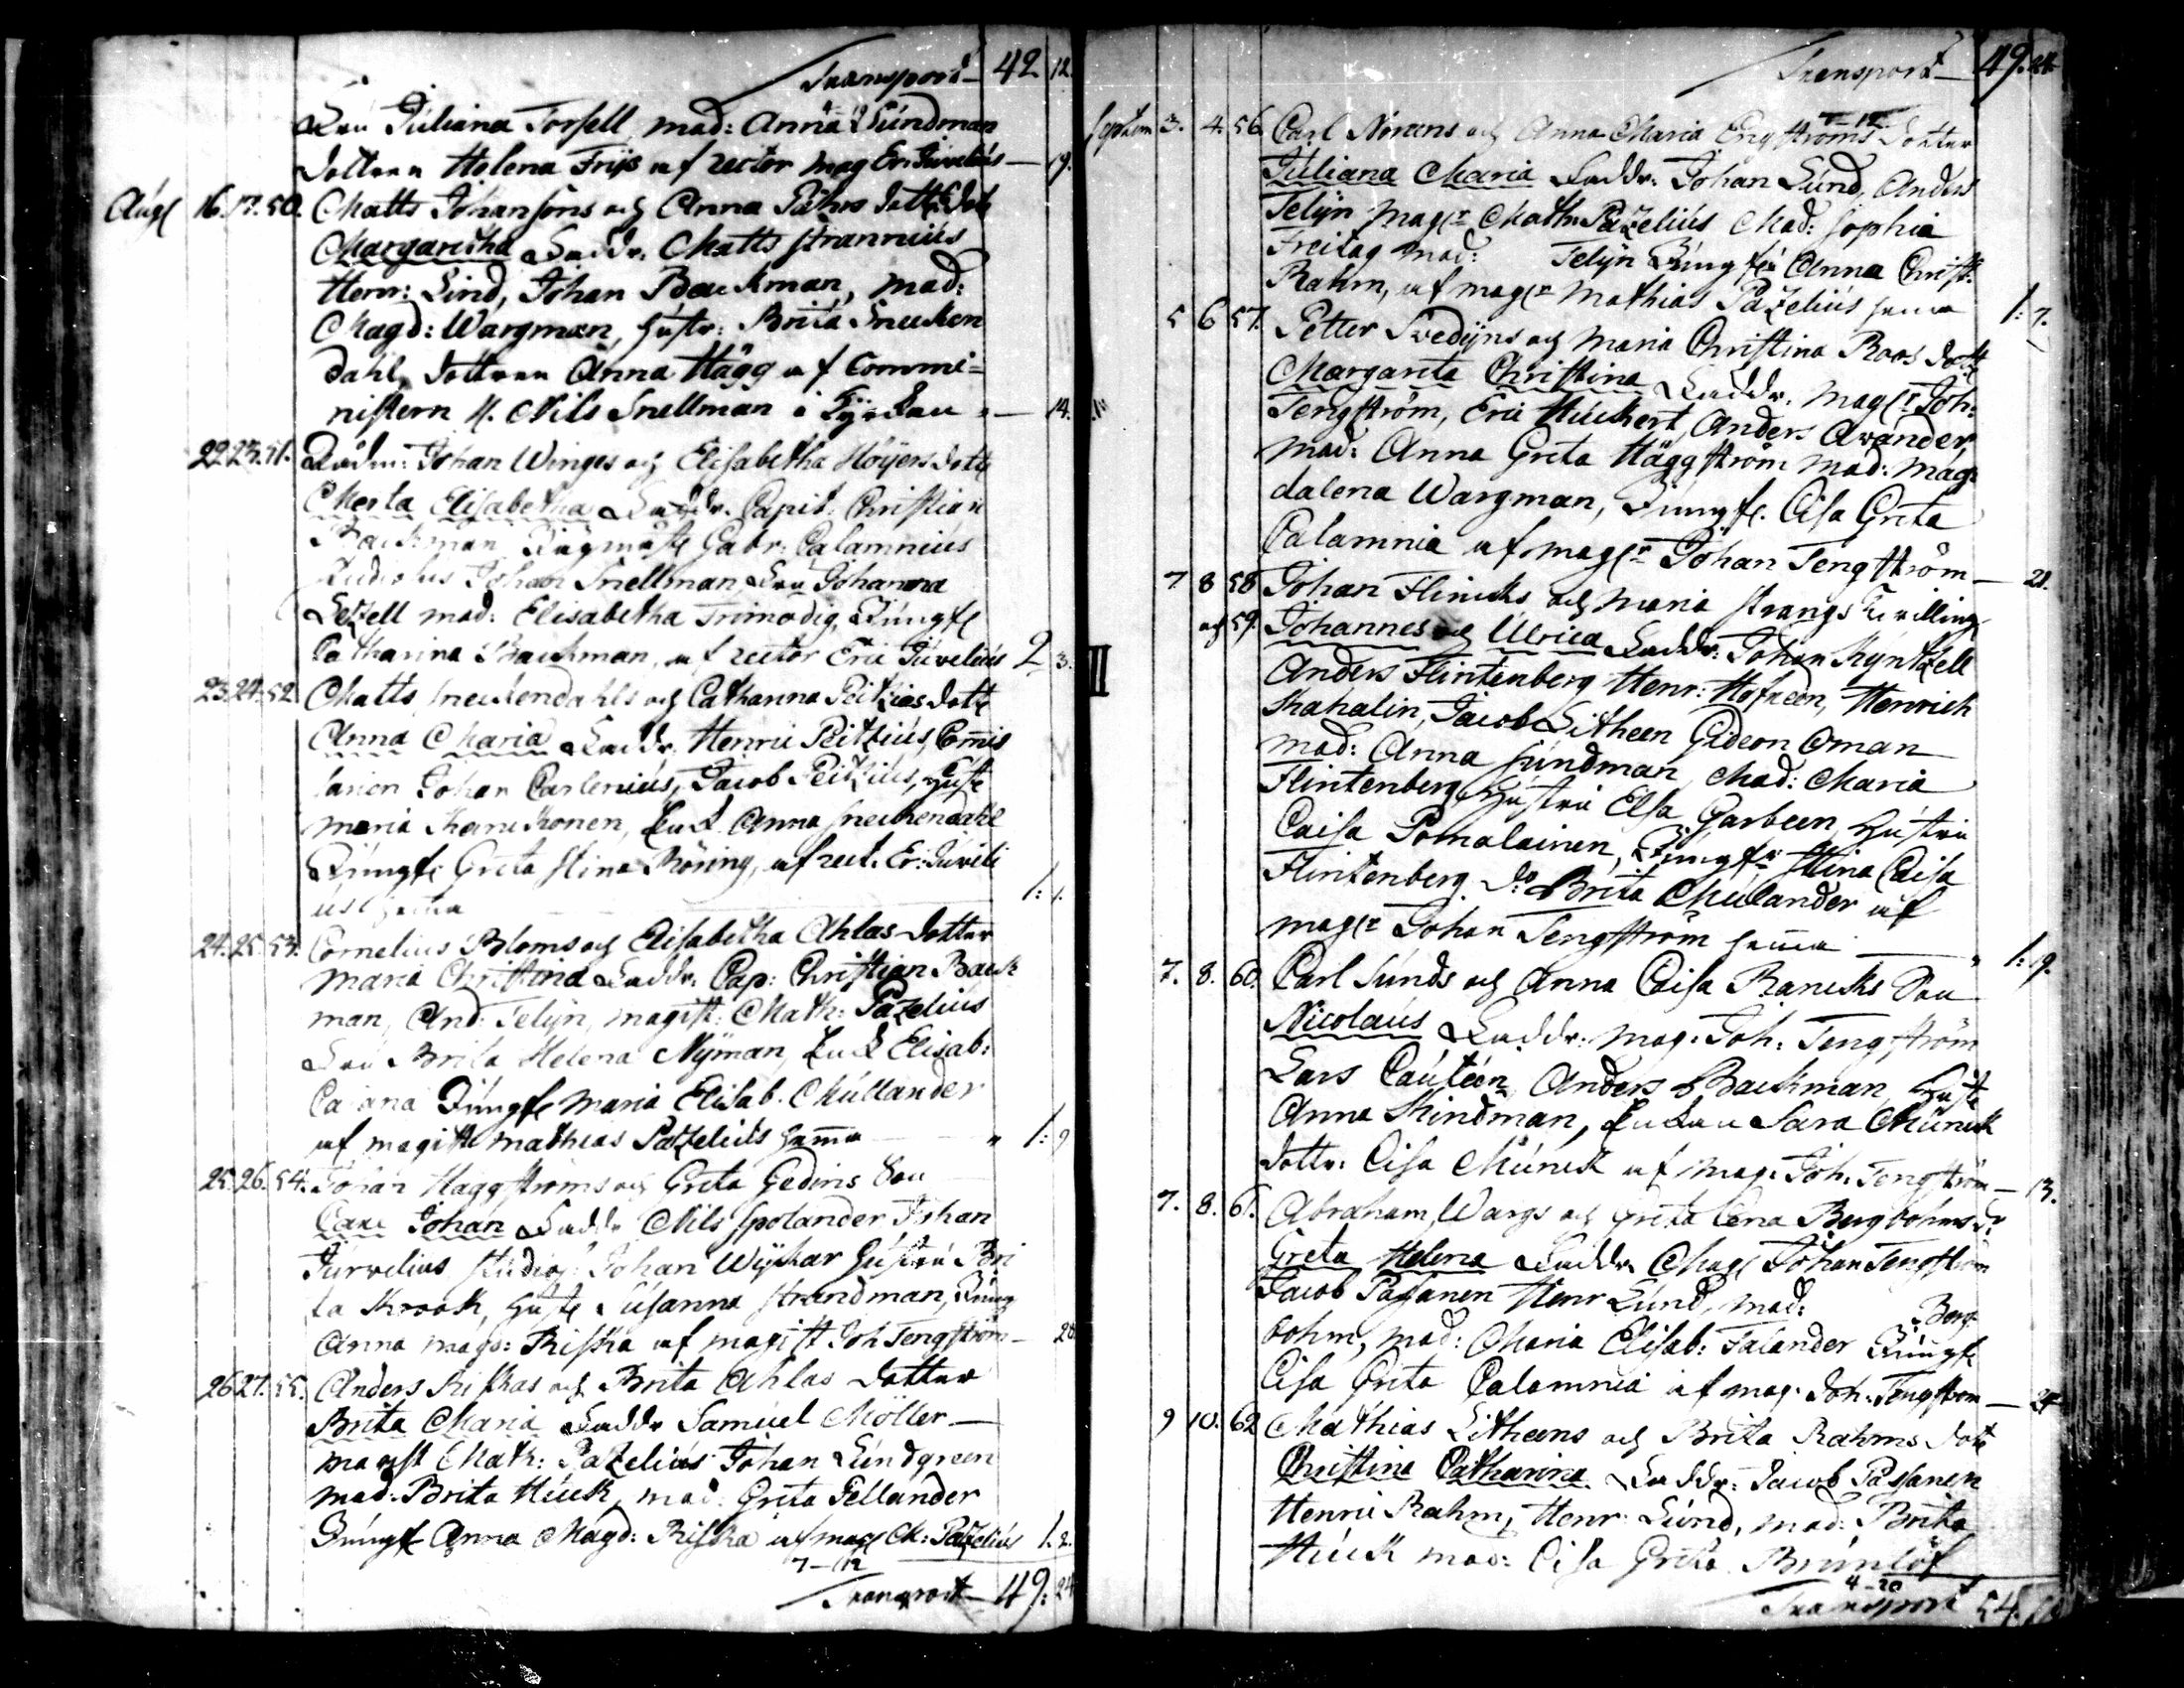 Transport 42 12.
Fru Juliana Forsell mad: Anna Sundman
dottren Helena Frijs af rector mag Er. Juvelius — 19.
Aug 16. 17. 50. Matts Johansons och Anna Pährs dotter
Margaretha Faddr. Matts Strannius
Henr: Lind, Johan Backman, mad:
Magd: Wargman, hustr: Brita Sneckendahl, dottren Anna Hägg af Commi=
nistern H. Nils Snellman i — 14.
22. 23. 51. Rådm: Johan Winges och Elisabetha Höijers dott
Merta Elisabetha Faddr. Capit: Christian
Backman Gabr: Calamnius
Studiosus Johan Snellman Fru Johanna
mad: Elisabetha Trimodig, Jungf
Catharina Backman, af rector Eric Juvelius 2 3.
23. 24. 52. Matts Sneckendahls och Catharina Peitzius dott
Anna Maria Faddr. Henric Peitzius, Comis
sarien Johan Carlenius, Jacob Peitzius, Hust
Maria, Anna Sneckendahl
Jungf: Greta Stina Köning, af rect. Er: Juveli
us 1: 1.
24. 25. 53. Cornelius Bloms och Elisabetha Ahlas dotter
Maria Christina Faddr. Cap: Christian Back
man, And: Felijn, magist: Math: Pazelius
Fru Brita Helena Nyman, Elisab:
Cajana Jungf Maria Elisab. Mullander
af magist Mathias Pazelius hema " 1: 9
25. 26. 54. Johan Häggströms och Greta Gedins Son
Carl Johan Faddr Nils Spolander Johan
Jurvelius studios: Johan Wijkar hustru Bri
ta Krook, hust Susanna Strandman, Jung
Anna Magd: Riska af magist Joh Tengström — 20
26 27. 55. Anders Riskas och Brita Ahlas dotter
Brita Maria Faddr Samuel Möller —
magist Math: Pazelius Johan Lundgreen
mad. Brita Huck, mad. Greta Fellander
Jungf Anna Magd: Riska af mag M: Pazelius 1. 2.
7 — 12
Transport — 49: 24
Transport 49. 24
Septem 3. 4. 56. Carl Norens och Anna Maria Engströms dotter
Juliana Maria Faddr: Johan Lund, Anders
Felijn Magr Math: Pazelius Mad: Sophia
Freitag mad: Felijn Jungfr Anna Christ:
Rahm, af magr Mathias Pazelius hema 1: 7.
5 6 57. Petter Svedijns och Maria Christina Roos dott
Margareta Christina Faddr. Magr Joh:
Tengström, Eric Huckert, Anders Avander,
mad: Anna Greta Häggström mad: Mag=
dalena Wargman, Jungf: Cisa Greta
Calamnia af magr Johan Tengström — 21.
7 8 58 Johan Flincks och Maria Strangs Tvilling
och 59. Johannes och Ulrica Faddr: Johan Kyntzell
Anders Flintenberg Henr: Hofreen, Henrich
Kahalin, Jacob Litheen Gideon Öman
mad: Anna Sundman, Mad: Maria
Flintenberg Hustru Elsa Garbeen, Hustru
Caisa Pomalainen, Jungfr Stina Caisa
Flintenberg. do Brita Mulander af
magr Johan Tengström hema " 1: 9.
7. 8. 60. Carl Lunds och Anna Caisa Rancks Son
Nicolaus Faddr: Mag: Joh: Tengström
Lars Cauteén Anders Backman, Hust
Anna Skindman, Sara Munck
dottr: Cisa Munck af Mag: Joh: Tengström — 13.
7. 8. 61. Abraham Wargs och Greta Lena Bergbohms dr
Greta Helena Faddr. Mag Johan Tengström
Jacob Pasanen Henr Lund, Mad: Berg=
bohm, mad: Maria Elisab: Falander Jungf
Cisa Greta Calamnia af mag. Joh: Tengström — 24
9 10. 62 Mathias Litheens och Brita Rahms dott
Christina Catharina Faddr: Jacob Pasanen
Henric Rahm, Henr: Lund, mad: Brita
Huck mad: Cisa Greta Brunlöf
4 - 20
Transport 54.